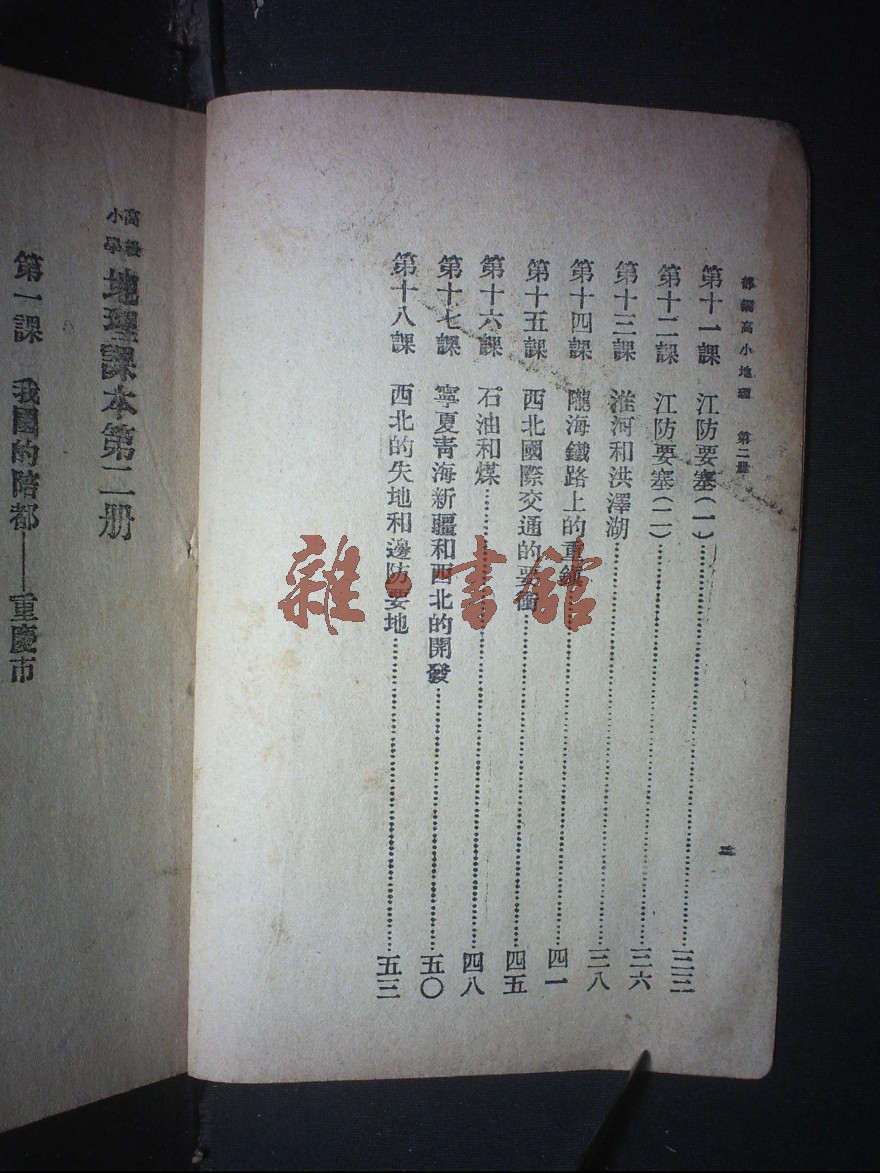 部編高小地理 第二册
第十一課 江防要塞(一)……三三
第十二課 江防要塞(二)……三六
第十三課 淮河和洪澤湖……三八
第十四課 隴海鐵路上的重鎮……四一
第十五課 西北國際交通的要衝……四五
第十六課 石油和煤……四八
第十七課 寧夏青海新疆和西北的開發……五〇
第十八課 西北的失地和邊防要地……五三
高級小學 地理課本第二册
第一課 我國的陪都——重慶市
雜·書館